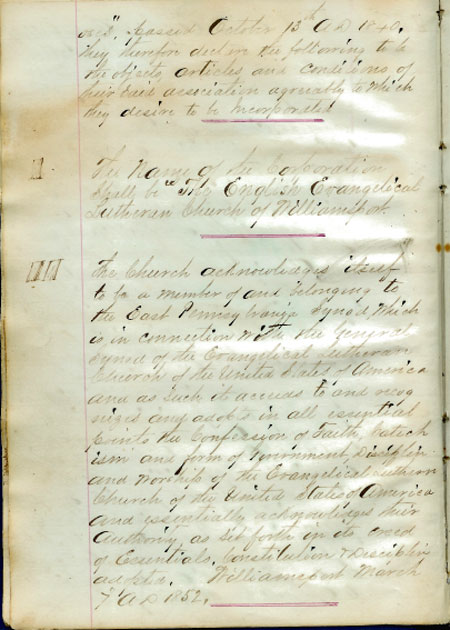 passed October 13th A D 1840,
they therefore declare the following to be
the objects, articles, and conditions of
their said association agreeably to which
they desire to be Incorporated
I The Name of the Corporation
shall be "The English Evangelical
Lutheran Church of Williamsport.
III The Church acknowledges itself
to be a member of and belonging to
the East Pennsylvania Synod which
is in connection with the General
Synod of the Evangelical Lutheran
Church of the United States of America
and as such it accedes to and recog
nizes and adopts in all essential
points the Confession of Faith, Catech
ism and form of Government, Disciplin
and Worship of the Evangelical Lutheran
Church of the United States of America
and essentially acknowledges their
Authority, as set forth in its creed
of Essentials, Constitution & Disciplin
Williamsport March
7th A D 1852.